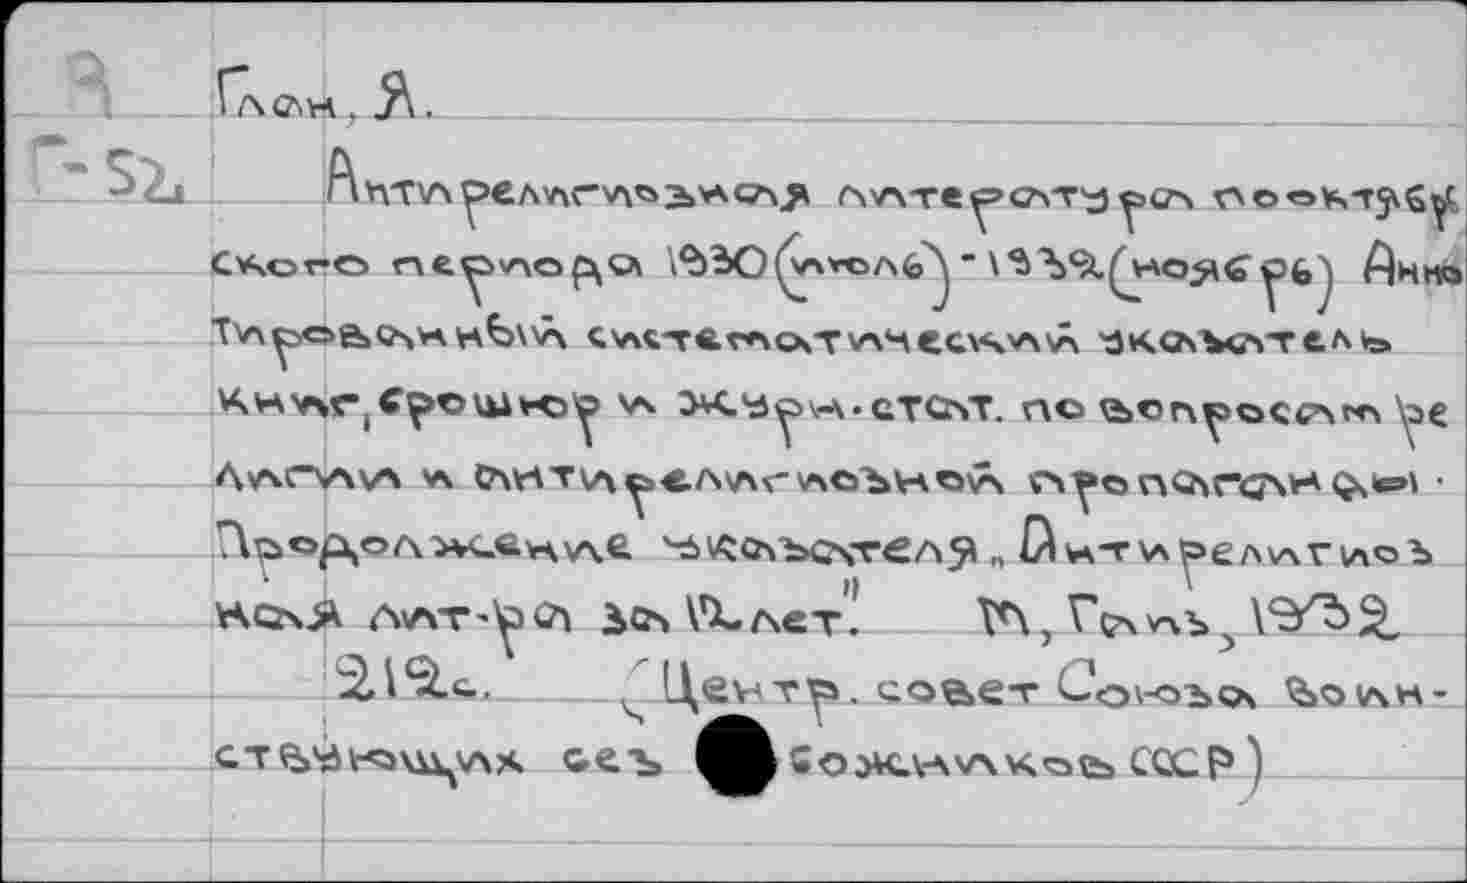 Я
Глан, Я.
Г-52
Антирелигиозная литература пооктябрь
ского периода 1930(июль)-1932(ноябрь) Анно
тированный систематический указатель
книг, брошюр и журн.стат. по вопросам ре
лигии и антирелигиозной пропаганды.
Продолжение указателя „Антирелигиоз
ная лит-ра за 12 лет". М, Гаиз, 1932
212с. (Центр. совет Союза воин-
ствующих безбожников СССР)